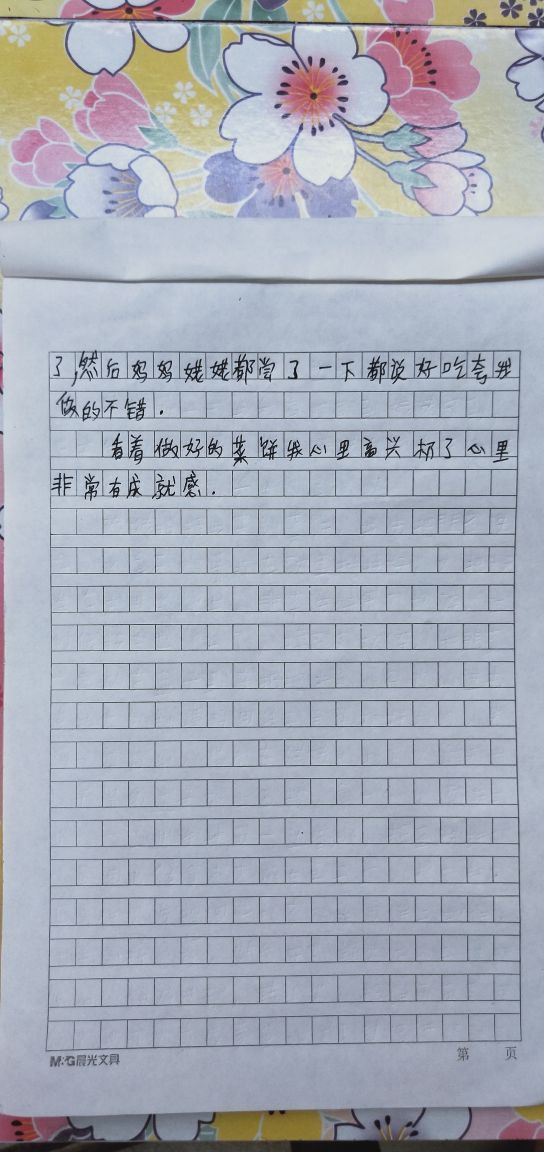 了,然后妈妈姥姥都尝了一下都说好吃夸我
做的不错.
看着做好的菜饼我心里高兴极了心里
非常有成就感.
M&G晨光文具
第 页